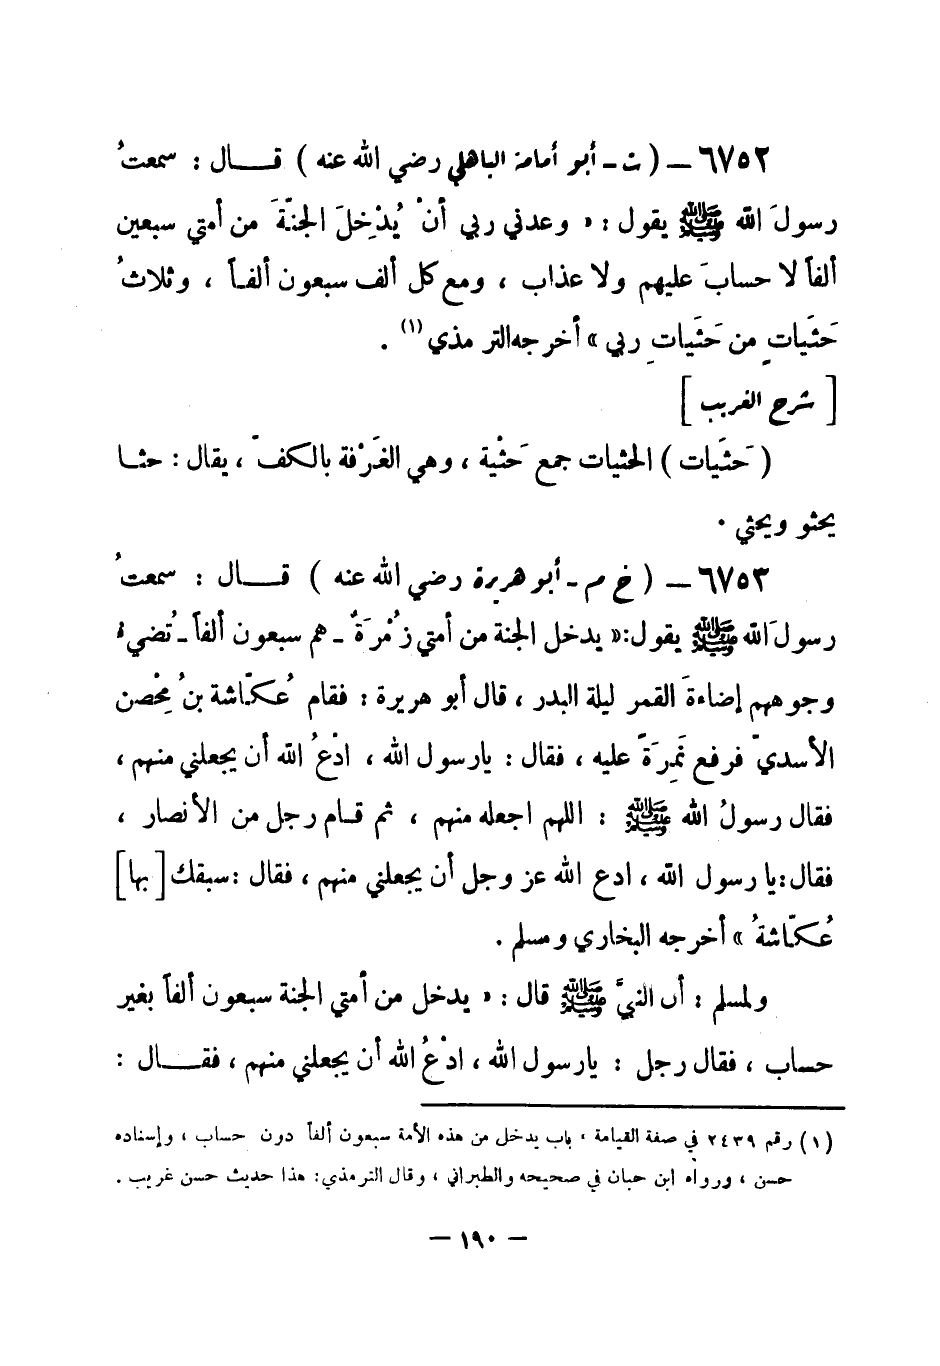 ٦٧٥٢ – ( ت - أبو أمامة الباهلي رضي الله عنه ) قـــال : سمعتُ
رسولَ الله ﷺ يقول : « وعدني ربي أنْ يُدْخِلَ الجنّةَ من أمتي سبعين
ألفاً لا حسابَ عليهم ولا عذاب ، ومع كل ألف سبعون ألفـاً ، وثلاثُ
حَثَيات من حَثَيات ربي » أخرجه الترمذي (١) .
[ شرح الغريب ]
( حَثَيات ) الحثيات جمع حَثْية ، وهي الغَرْفة بالكفّ ، يقال : حثـا
يحثو ويحثي .
٦٧٥٣ – ( خ م - أبو هريرة رضي الله عنه ) قـــال : سمعتُ
رسولَ الله ﷺ يقول : « يدخل الجنة من أمتي زُمْرَةٌ - هم سبعون ألفاً - تُضيء
وجوههم إضاءةَ القمر ليلة البدر ، قال أبو هريرة : فقام عُكّاشة بنُ مِحْصن
الأسديّ فرفع نَمِرَةً عليه ، فقال : يا رسول الله ، ادْعُ الله أن يجعلني منهم ،
فقال رسولُ الله ﷺ : اللهم اجعله منهم ، ثم قـام رجل من الأنصار ،
فقال : يا رسول الله ، ادع الله عز وجل أن يجعلني منهم ، فقال : سبقك [ بها ]
عُكّاشةُ » أخرجه البخاري ومسلم .
ولمسلم : أن النبيَّ ﷺ قال : « يدخل من أمتي الجنة سبعون ألفاً بغير
حساب ، فقال رجل : يا رسول الله ، ادْعُ الله أن يجعلني منهم ، فقـــال :
(١) رقم ٢٤٣٩ في صفة القيامة ، باب يدخل من هذه الأمة سبعون ألفاً دون حساب ، وإسناده
حسن ، ورواه ابن حبان في صحيحه والطبراني ، وقال الترمذي : هذا حديث حسن غريب .
– ١٩٠ –